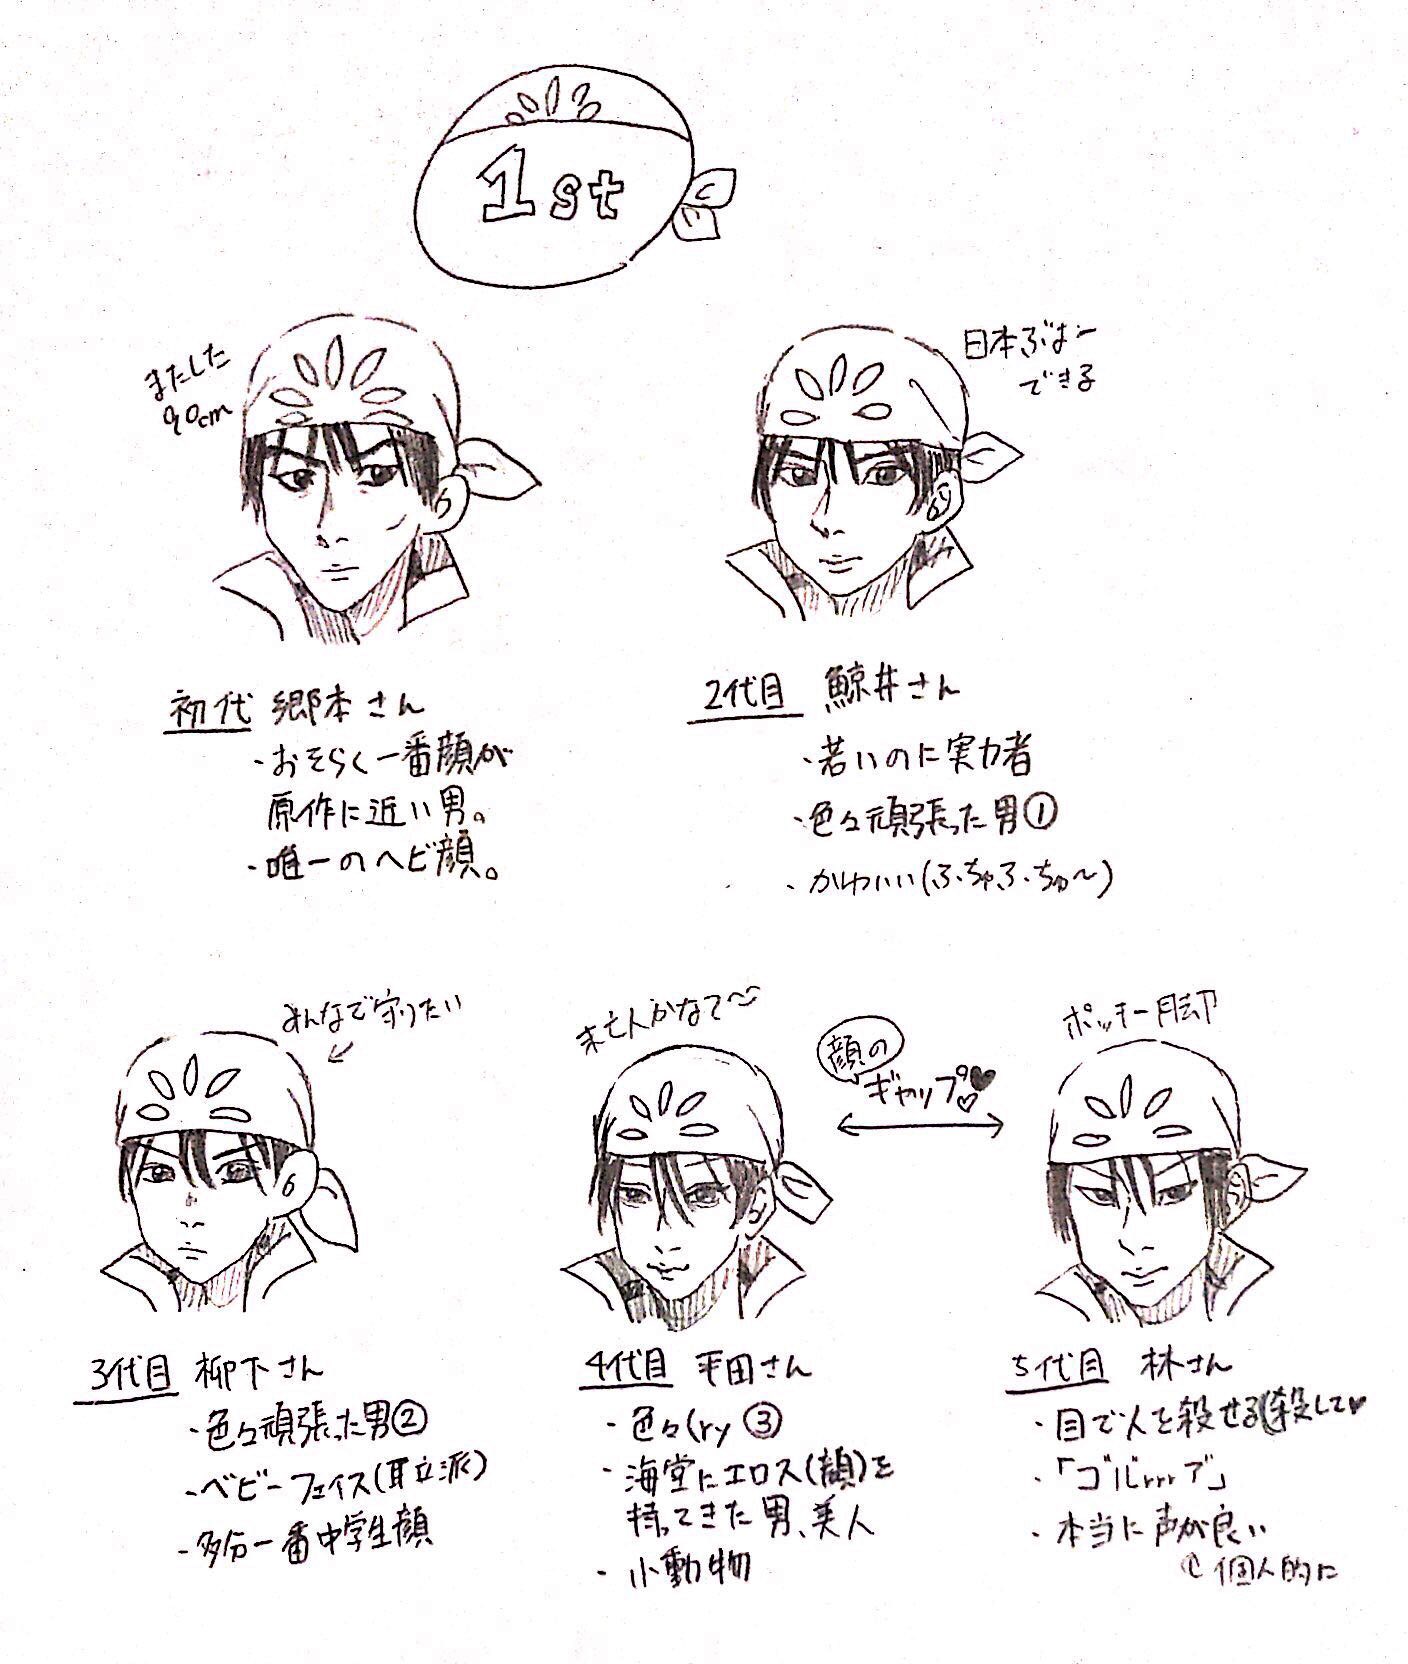 1st
またした
90cm
日本ぶよー
できる
初代 郷本さん
・おそらく一番顔が
原作に近い男。
・唯一のヘビ顔。
2代目 鯨井さん
・若いのに実力者
・色々頑張った男①
・かわいい(ふちゅふちゅ〜)
みんなで守りたい
未亡人かなて〜
顔の
ギャップ♥♡
ポッキー脚
3代目 柳下さん
・色々頑張った男②
・ベビーフェイス(耳立派)
・多分一番中学生顔
4代目 平田さん
・色々(ry ③
・海堂にエロス(顔)を
持ってきた男、美人
・小動物
5代目 林さん
・目で人を殺せる(殺して♥
・「ゴルrrrァ」
・本当に声が良い
個人的に